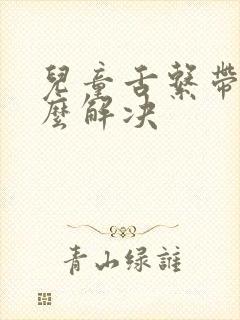 兒童舌繫帶
麼解决
青山绿誰